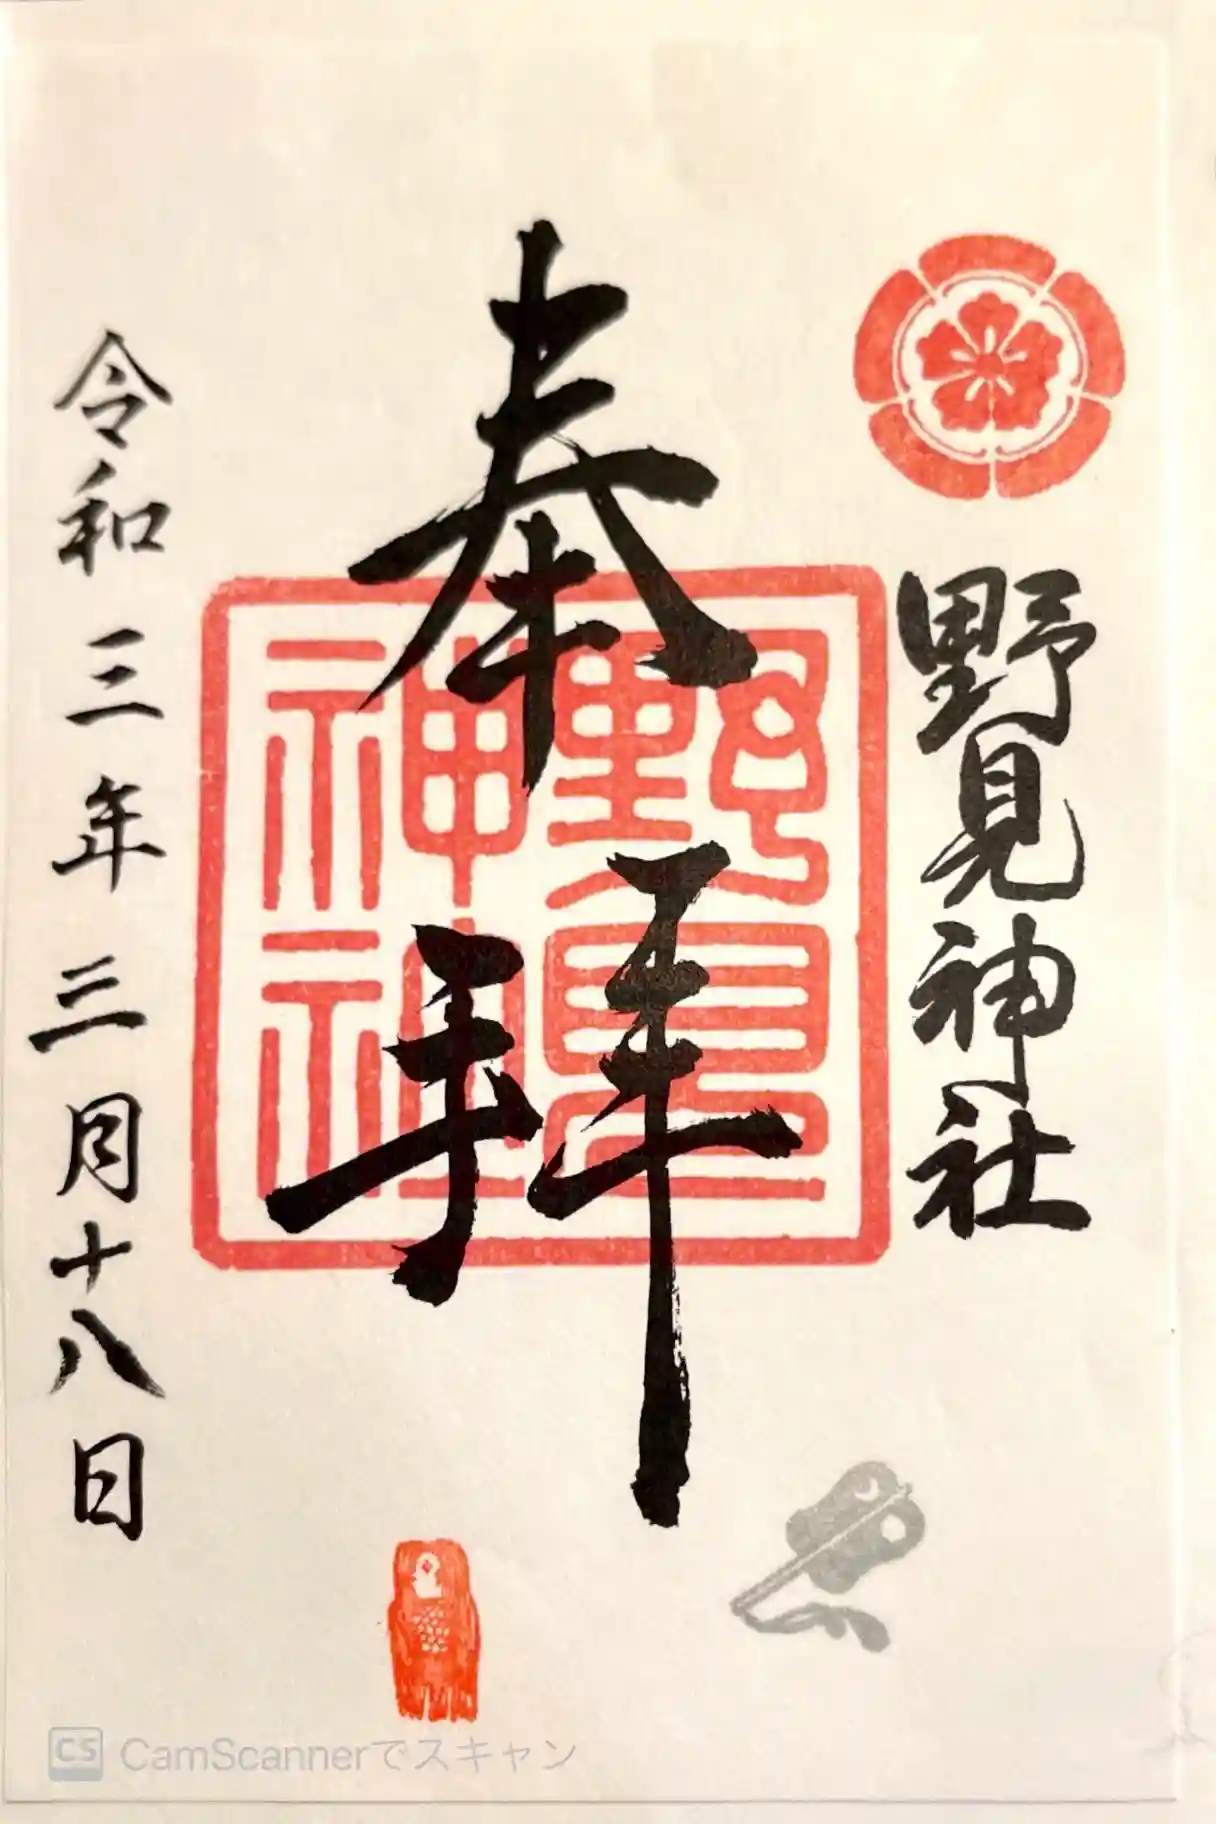 野見神社
奉拝
野見
神社
令和三年三月十八日
CS CamScannerでスキャン